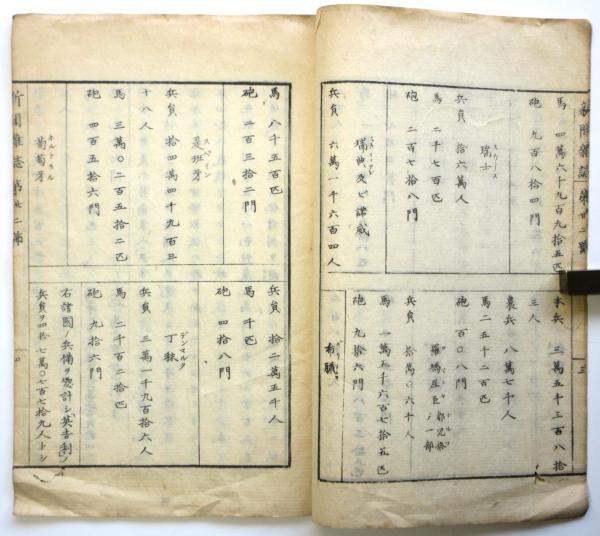 馬 四萬六千九百九拾五匹
砲 九百八拾四門
スウィース
瑞士
兵員 拾六萬人
馬 二千七百匹
砲 二百七拾八門
瑞典及ビ諾威
兵員 六萬一千六百四人
本兵 三萬五千三百八拾
三人
農兵 八萬七千人
馬二万五千二百匹
砲 百〇八門
ノ一部
兵員 拾萬〇六千人
馬 一萬五千六百七拾五匹
砲 九拾六門
三
馬 八千五百匹
砲 二百三拾二門
スペイン
是班牙
兵員 拾四萬四千九百三
十八人
馬 三萬〇二百五拾二匹
砲 四百五拾六門
ホルトガル
葡萄牙
兵員 拾二萬五千人
馬 千匹
砲 四拾八門
デンマルク
丁抹
兵員 三萬一千九百拾六人
馬 二千百二拾匹
砲 九拾六門
右諸國ノ兵備ヲ惣計シ英吉利ノ
兵員ヲ四拾七萬〇七百七拾九人トシ
新聞雜志 第廿二號
四